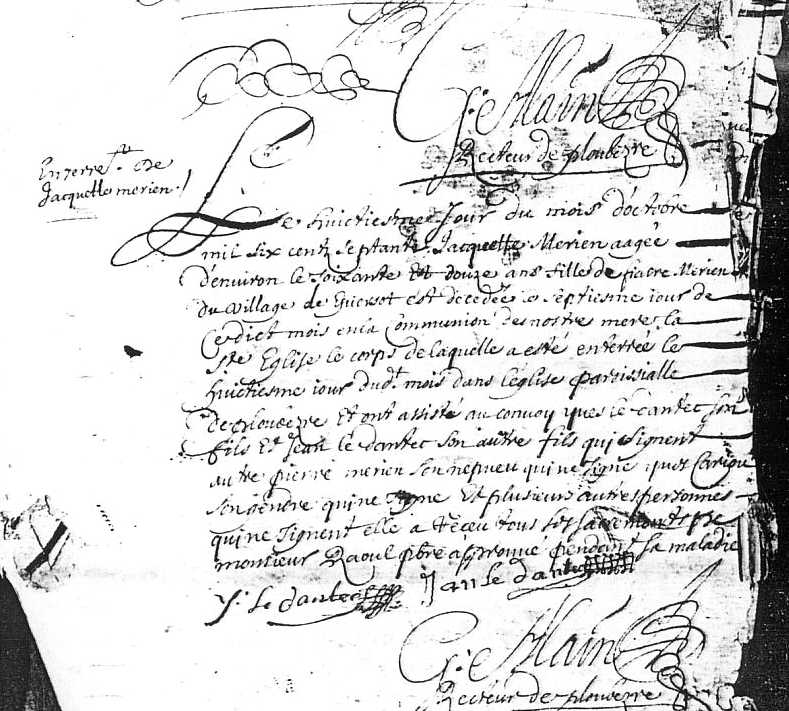 G: Allain
Recteur de ploubezre
Enterre.t de
Jacquette merien.
Le huictiesme Jour du mois d'octobre
mil six centz septante Jacquette Merien aagée
d'environ le soixante et douze ans fille de fiacre Merien
du village de est decedée le septiesme iour de
Ce dict mois en la Communion de nostre mere la
Ste Eglise le corps de laquelle a esté enterrée le
huictiesme iour dud.t mois dans l'église paroissialle
de ploubezre Et ont assisté au convoy yves le dantec son
fils Et Jean le dantec son autre fils qui signent
autre pierre merien son nepveu qui ne signe yves
son gendre qui ne signe Et plusieurs autres personnes
qui ne signent elle a Receu tous ses sacrements de
monsieur Raoul pbre approuvé pendant sa maladie
Y: le dantec Jan le dantec
G: Allain
Recteur de ploubezre